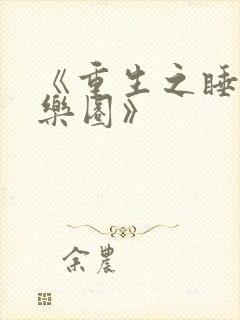 《重生之睡
樂園》
余農